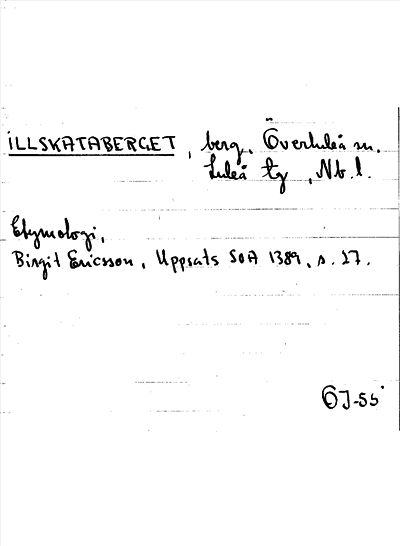 ILLSKATABERGET, berg, Överluleå sn.
Luleå tg, Nb. l.
Etymologi,
Birgit Ericsson, Uppsats SOA 1389, s. 17.
ÖJ-55